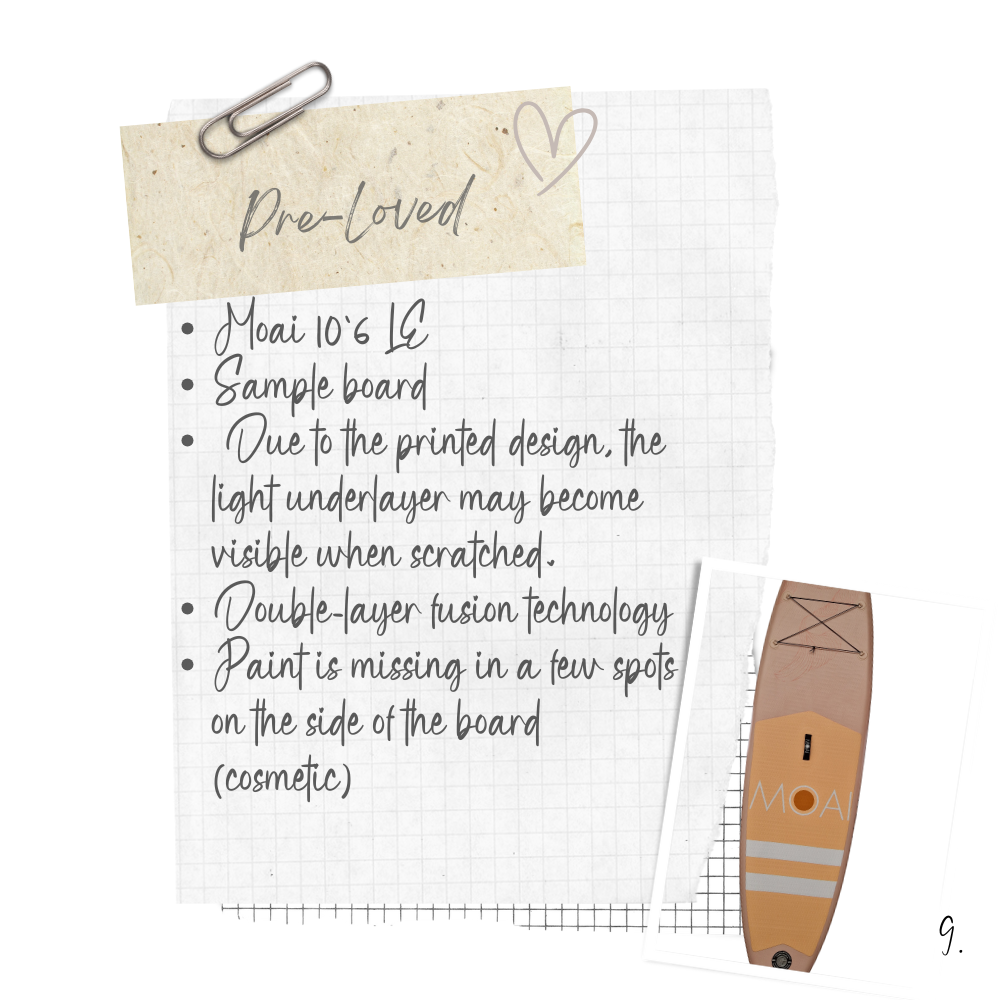 Pre-Loved
• Moai 10`6 LE
• Sample board
• Due to the printed design, the
light underlayer may become
visible when scratched.
• Double-layer fusion technology
• Paint is missing in a few spots
on the side of the board
(cosmetic)
MOAI
9.